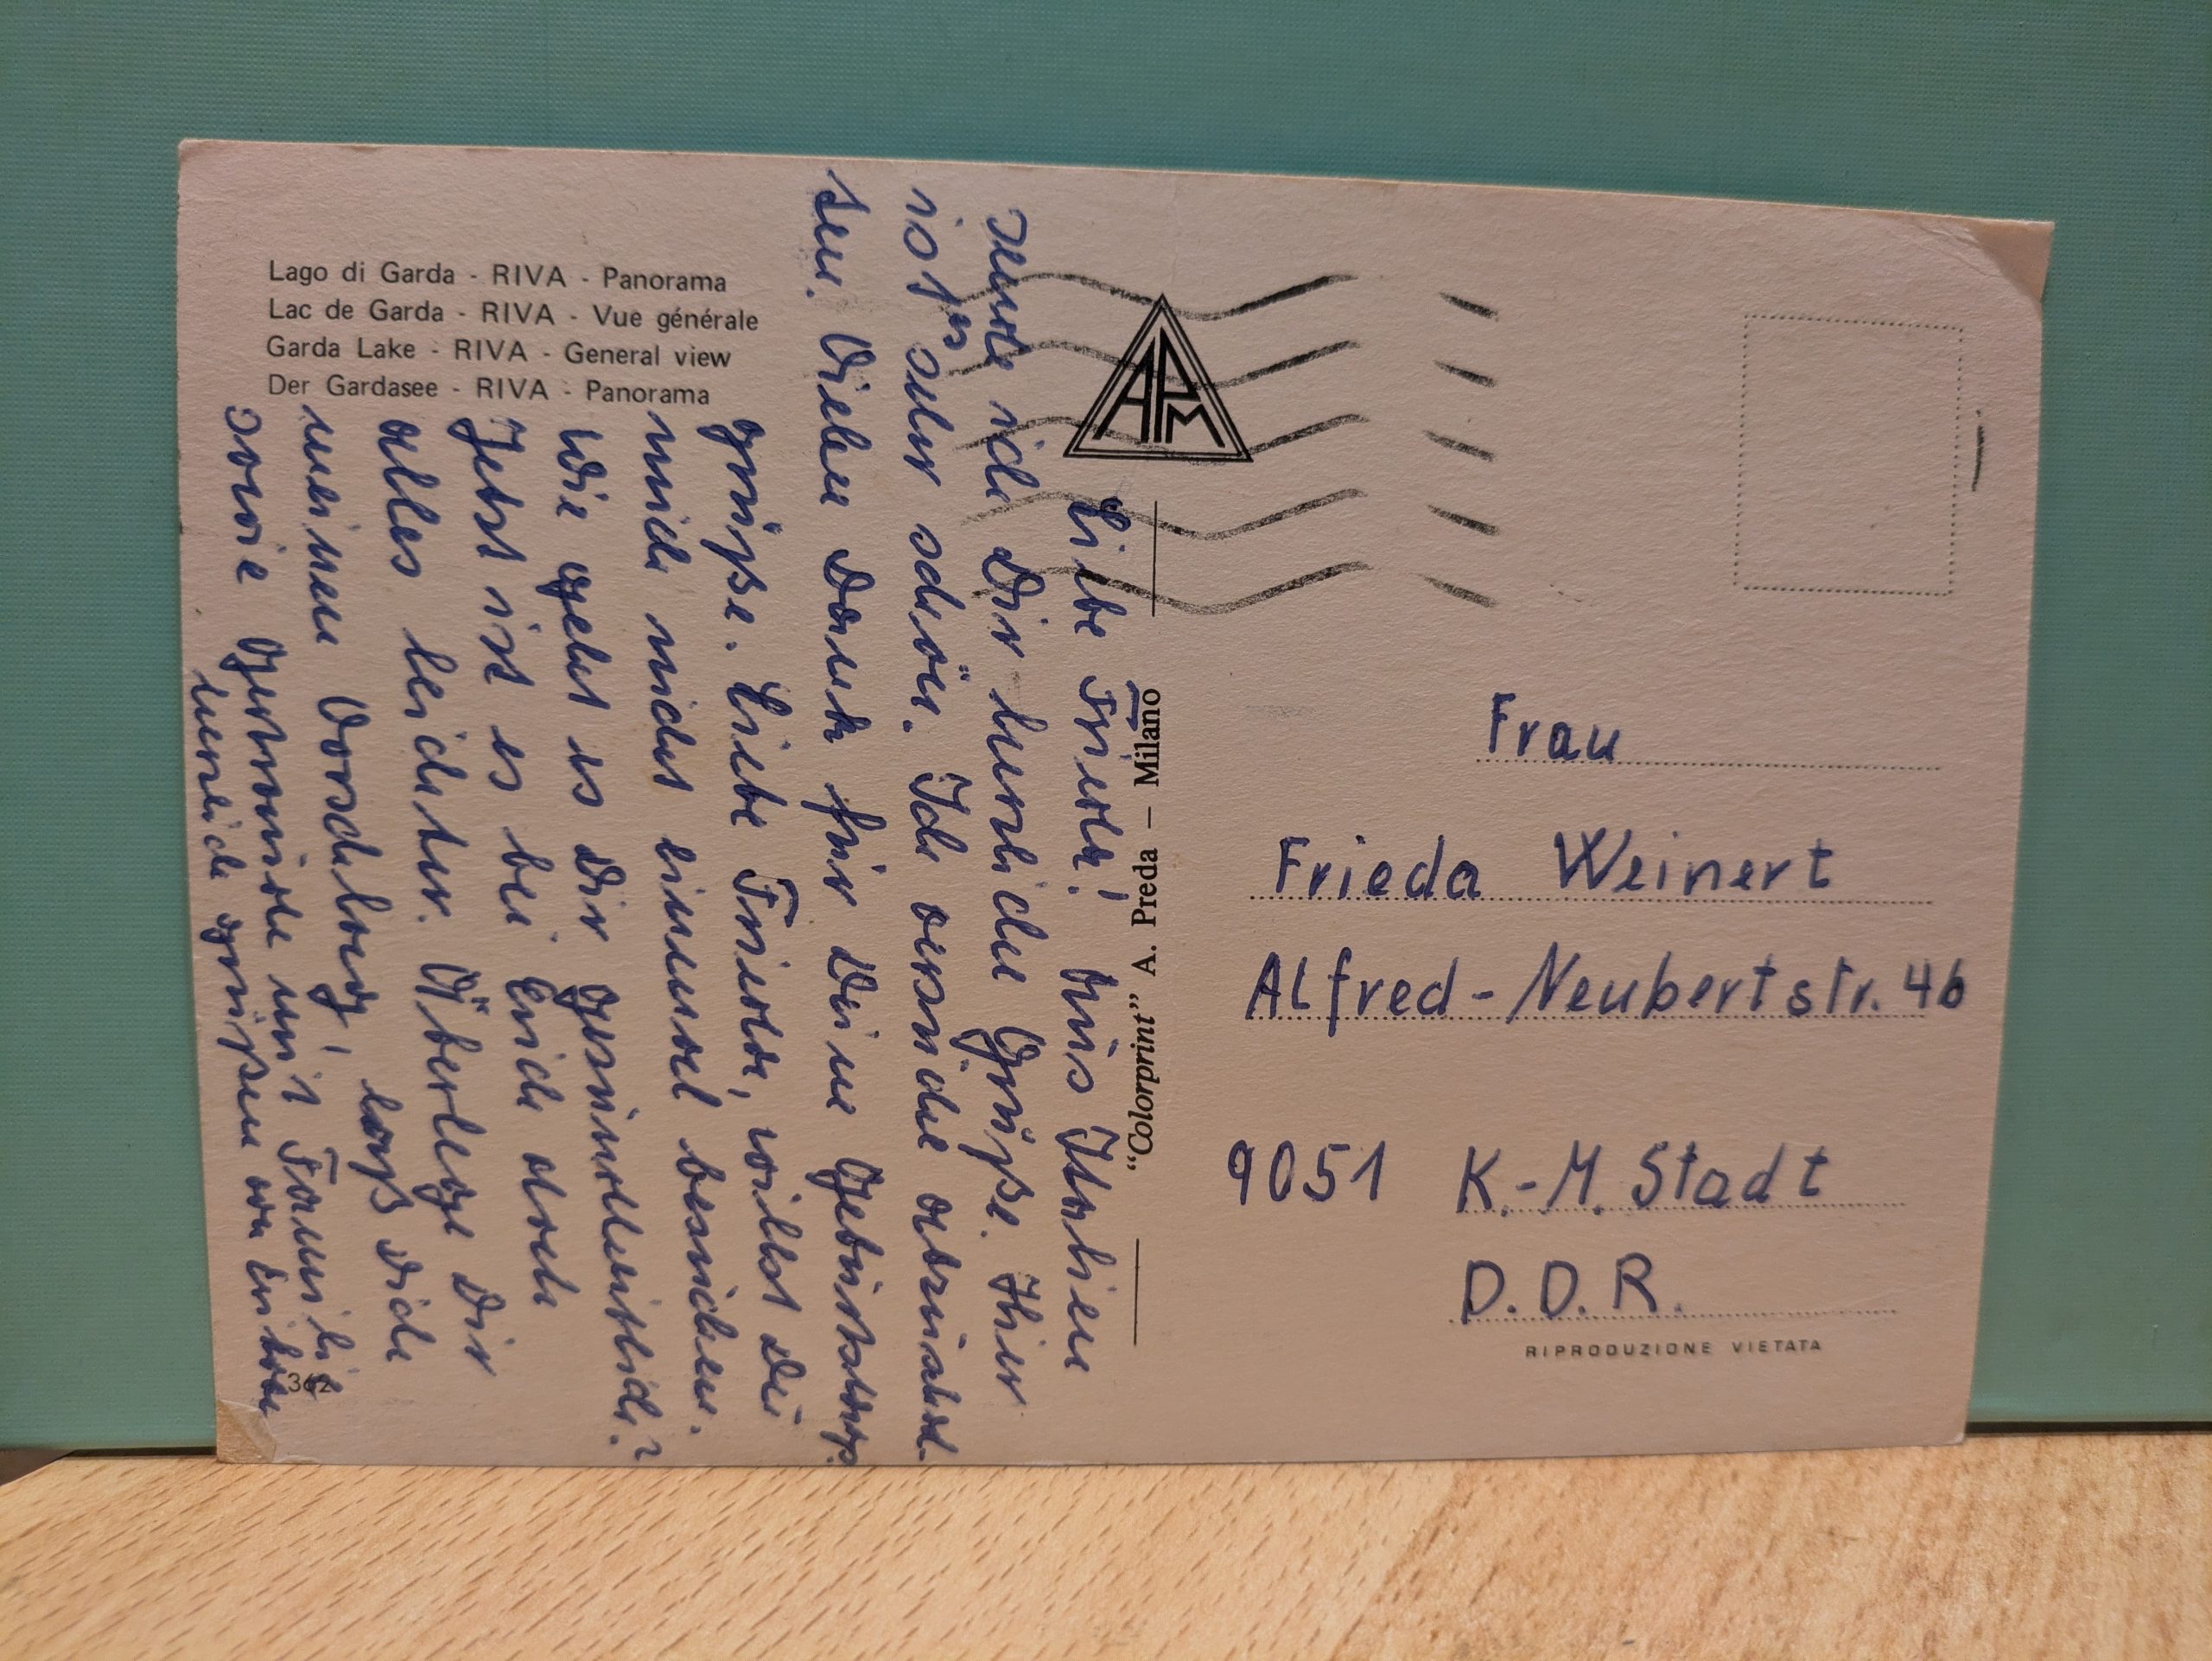 Lago di Garda - RIVA - Panorama
Lac de Garda - RIVA - Vue générale
Garda Lake - RIVA - General view
Der Gardasee - RIVA - Panorama
Liebe Frieda! Aus Italien
sende ich Dir herzliche Grüße. Hier
ist es sehr schön. Ich versuche abzuschal-
ten. Vielen Dank für Deine Geburtstags-
grüße. Liebe Frieda, willst Du
mich nicht einmal besuchen.
Wie geht es Dir gesundheitlich?
Jetzt ist es bei Euch doch
alles leichter. Überlege Dir
meinen Vorschlag, laß Dich
sowie Gertraude mit Familie
herzlich grüßen von
362
APM
"Colorprint" A. Preda - Milano
Frau
Frieda Weinert
Alfred-Neubertstr. 46
9051 K.-M. Stadt
D.D.R.
RIPRODUZIONE VIETATA